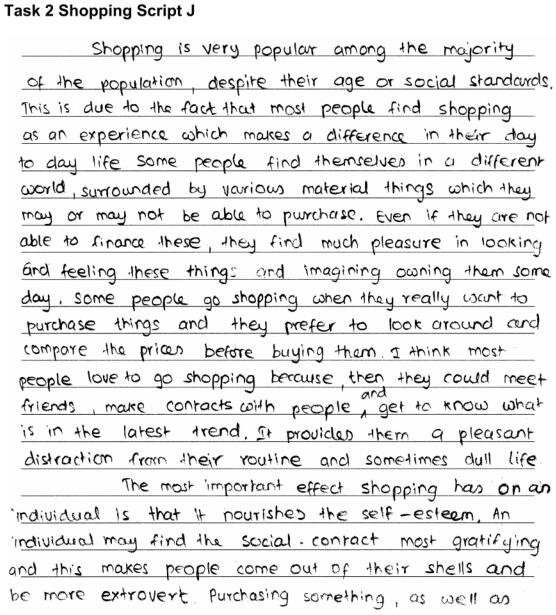 Task 2 Shopping Script J
Shopping is very popular among the majority
of the population, despite their age or social standards.
This is due to the fact that most people find shopping
as an experience which makes a difference in their day
to day life some people find themselves in a different
world, surrounded by various material things which they
may or may not be able to purchase. Even if they are not
able to finance these, they find much pleasure in looking
and feeling these things and imagining owning them some
day. Some people go shopping when they really want to
purchase things and they prefer to look around and
compare the prices before buying them. I think most
people love to go shopping because, then they could meet
friends, make contacts with people and get to know what
is in the latest trend. It provides them a pleasant
distraction from their routine and sometimes dull life
The most important effect shopping has on an
individual is that it nourishes the self-esteem. An
individual may find the social.contact most gratifying
and this makes people come out of their shells and
be more extrovert. Purchasing something, as well as